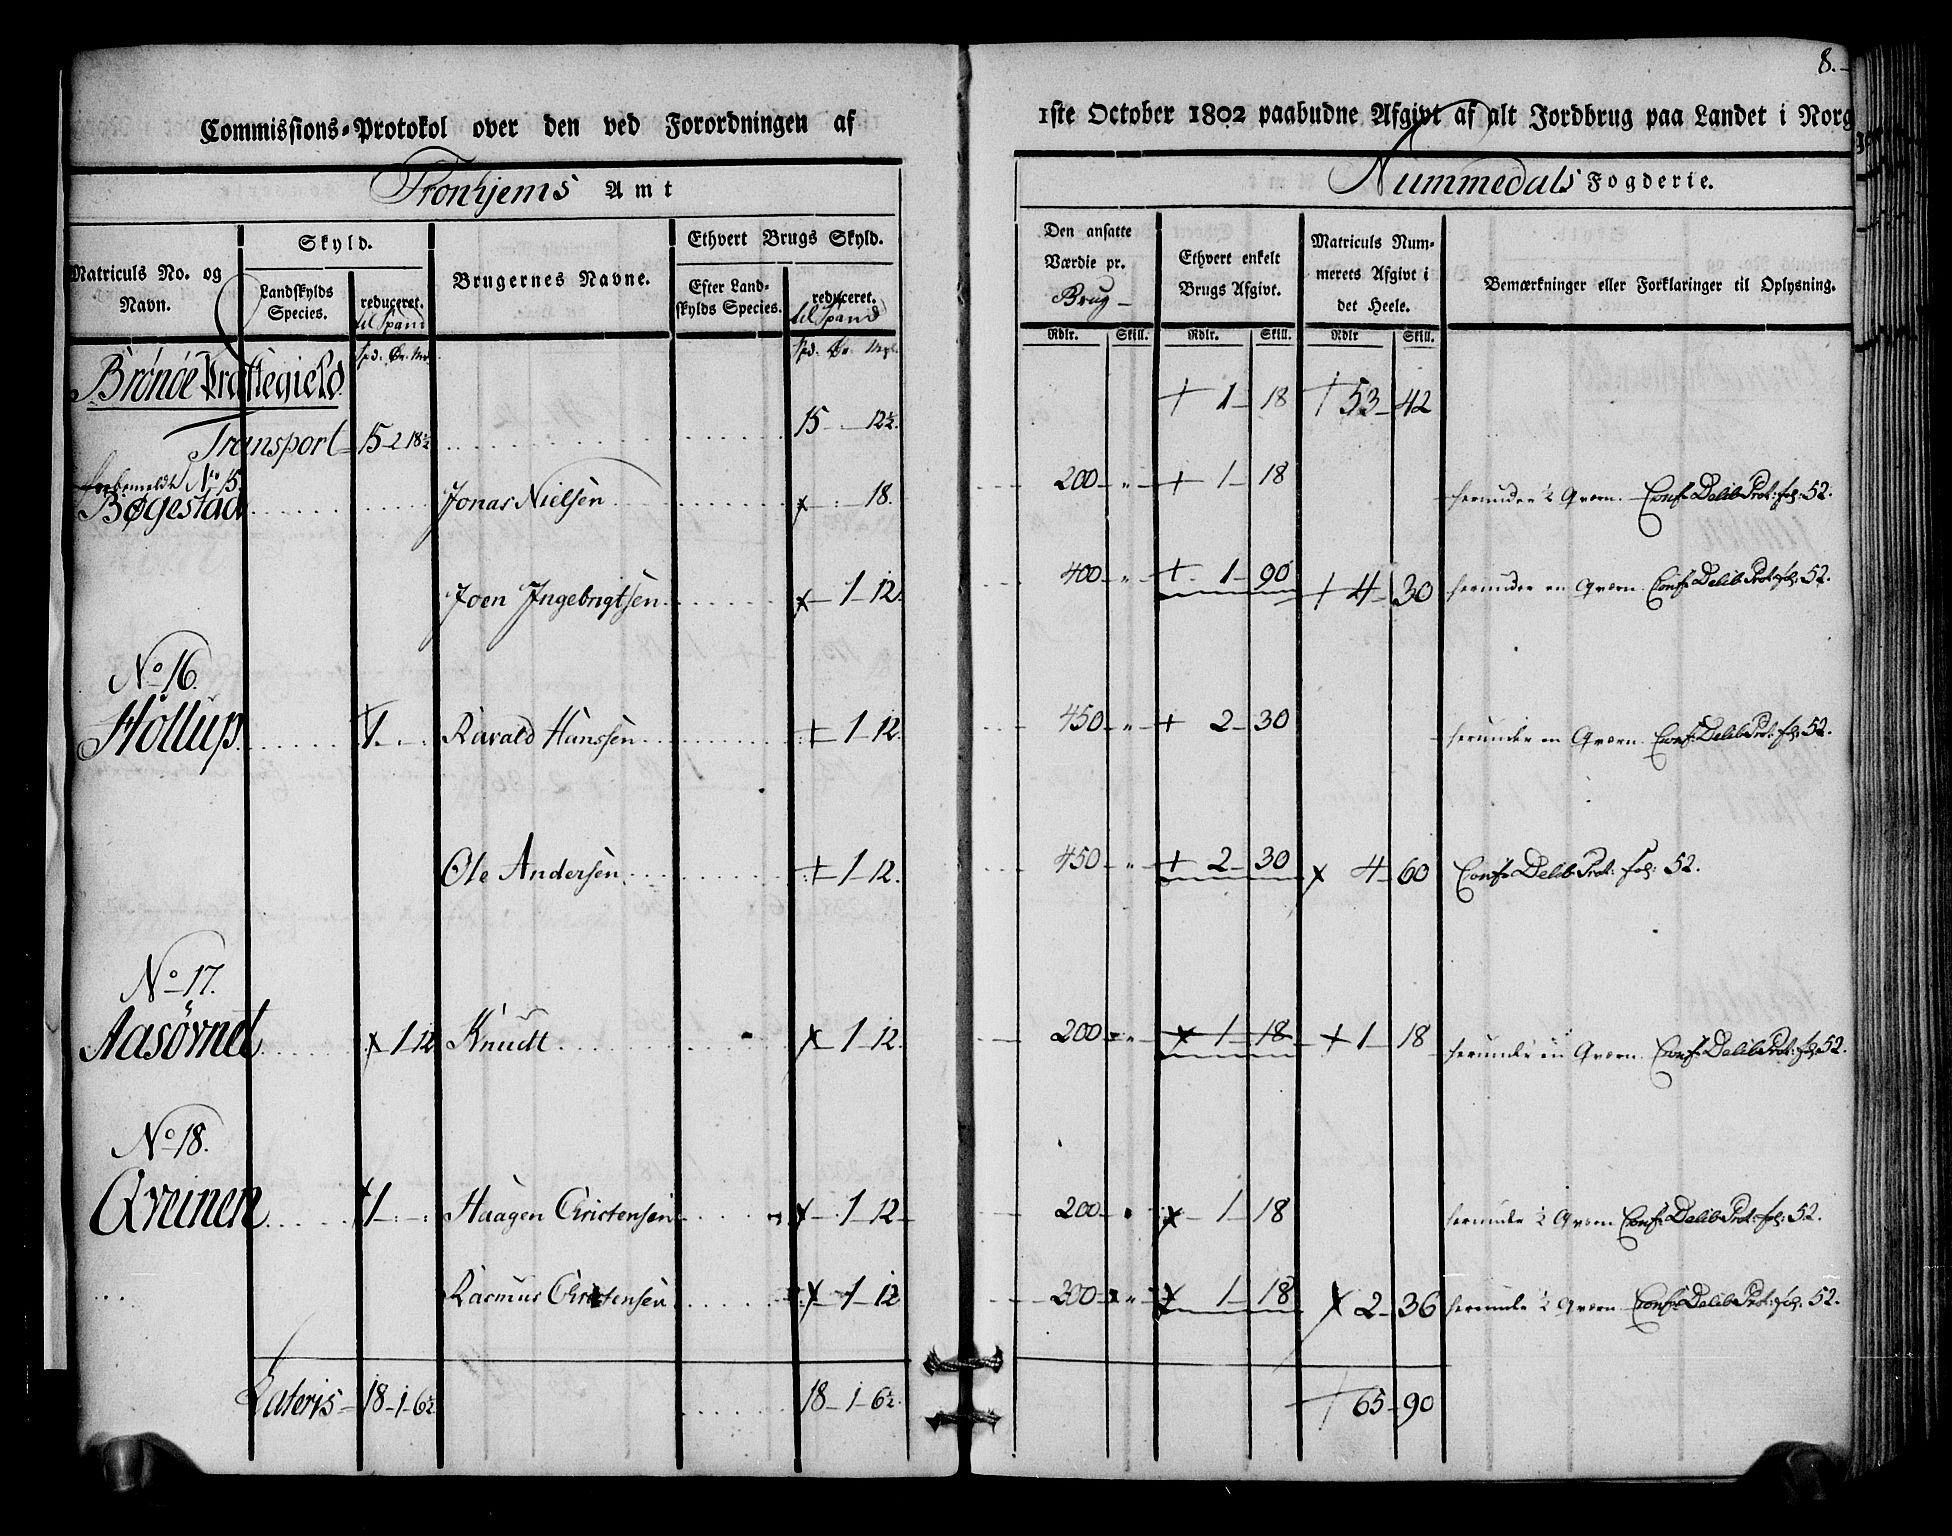 8.
Commissions-Protokol over den ved Forordningen af 1ste October 1802 paabudne Afgivt af alt Jordbrug paa Landet i Norg
Tronhjems Amt
Nummedals Fogderie.
Matriculs No. og Navn.
Skyld.
Landskylds Species.
reduceret. til Spand
Brugernes Navne.
Ethvert Brugs Skyld.
Efter Landskylds Species.
reduceret. til Spand
Den ansatte Værdie pr. Brug
Ethvert enkelt Brugs Afgivt.
Matriculs Nummerets Afgivt i det Heele.
Bemærkninger eller Forklaringer til Oplysning.
Rdlr. Skill. Rdlr. Skill. Rdlr Skill.
Brönöe Præstegield
Transport 15 2 18½ 15 - 12½. + 1 - 18 + 53 - 42
forbemeldte No 15.
Bøgestad Jonas Nielsen 18. 200 + 1 - 18 herunder ½ Qværn. Conf. Delib. Prot: fol: 52.
Joen Ingebrigtsen 1 - 12. 400 + 1 - 90 + 4 - 30 herunder en Qværn. Conf. Delib. Prot: fol: 52.
No 16.
Hollup 1 Ravald Hanssen + 1 - 12. 450 + 2 - 30 herunder en Qværn. Conf. Delib. Prot: fol: 52.
Ole Andersen + 1 - 12. 450 + 2 - 30 4 - 60 Conf. Delib. Prot: fol: 52.
No 17.
Aasövnet 1 12 Knudt 1 - 12. 200 1 - 18 + 1 - 18 herunder en Qværn. Conf. Delib. Prot: fol: 52.
No 18.
Qveinen 1 Haagen Christensen 1 - 12 200 1 - 18 herunder ½ Qværn Conf. Delib. Prot: fol: 52.
Rasmus Christensen 1 - 12 200 1 - 18 2 - 36 herunder ½ Qværn. Conf. Delib. Prot: fol: 52.
Lateris 18 - 1 - 6½ 18 - 1 - 6½. + 65 - 90